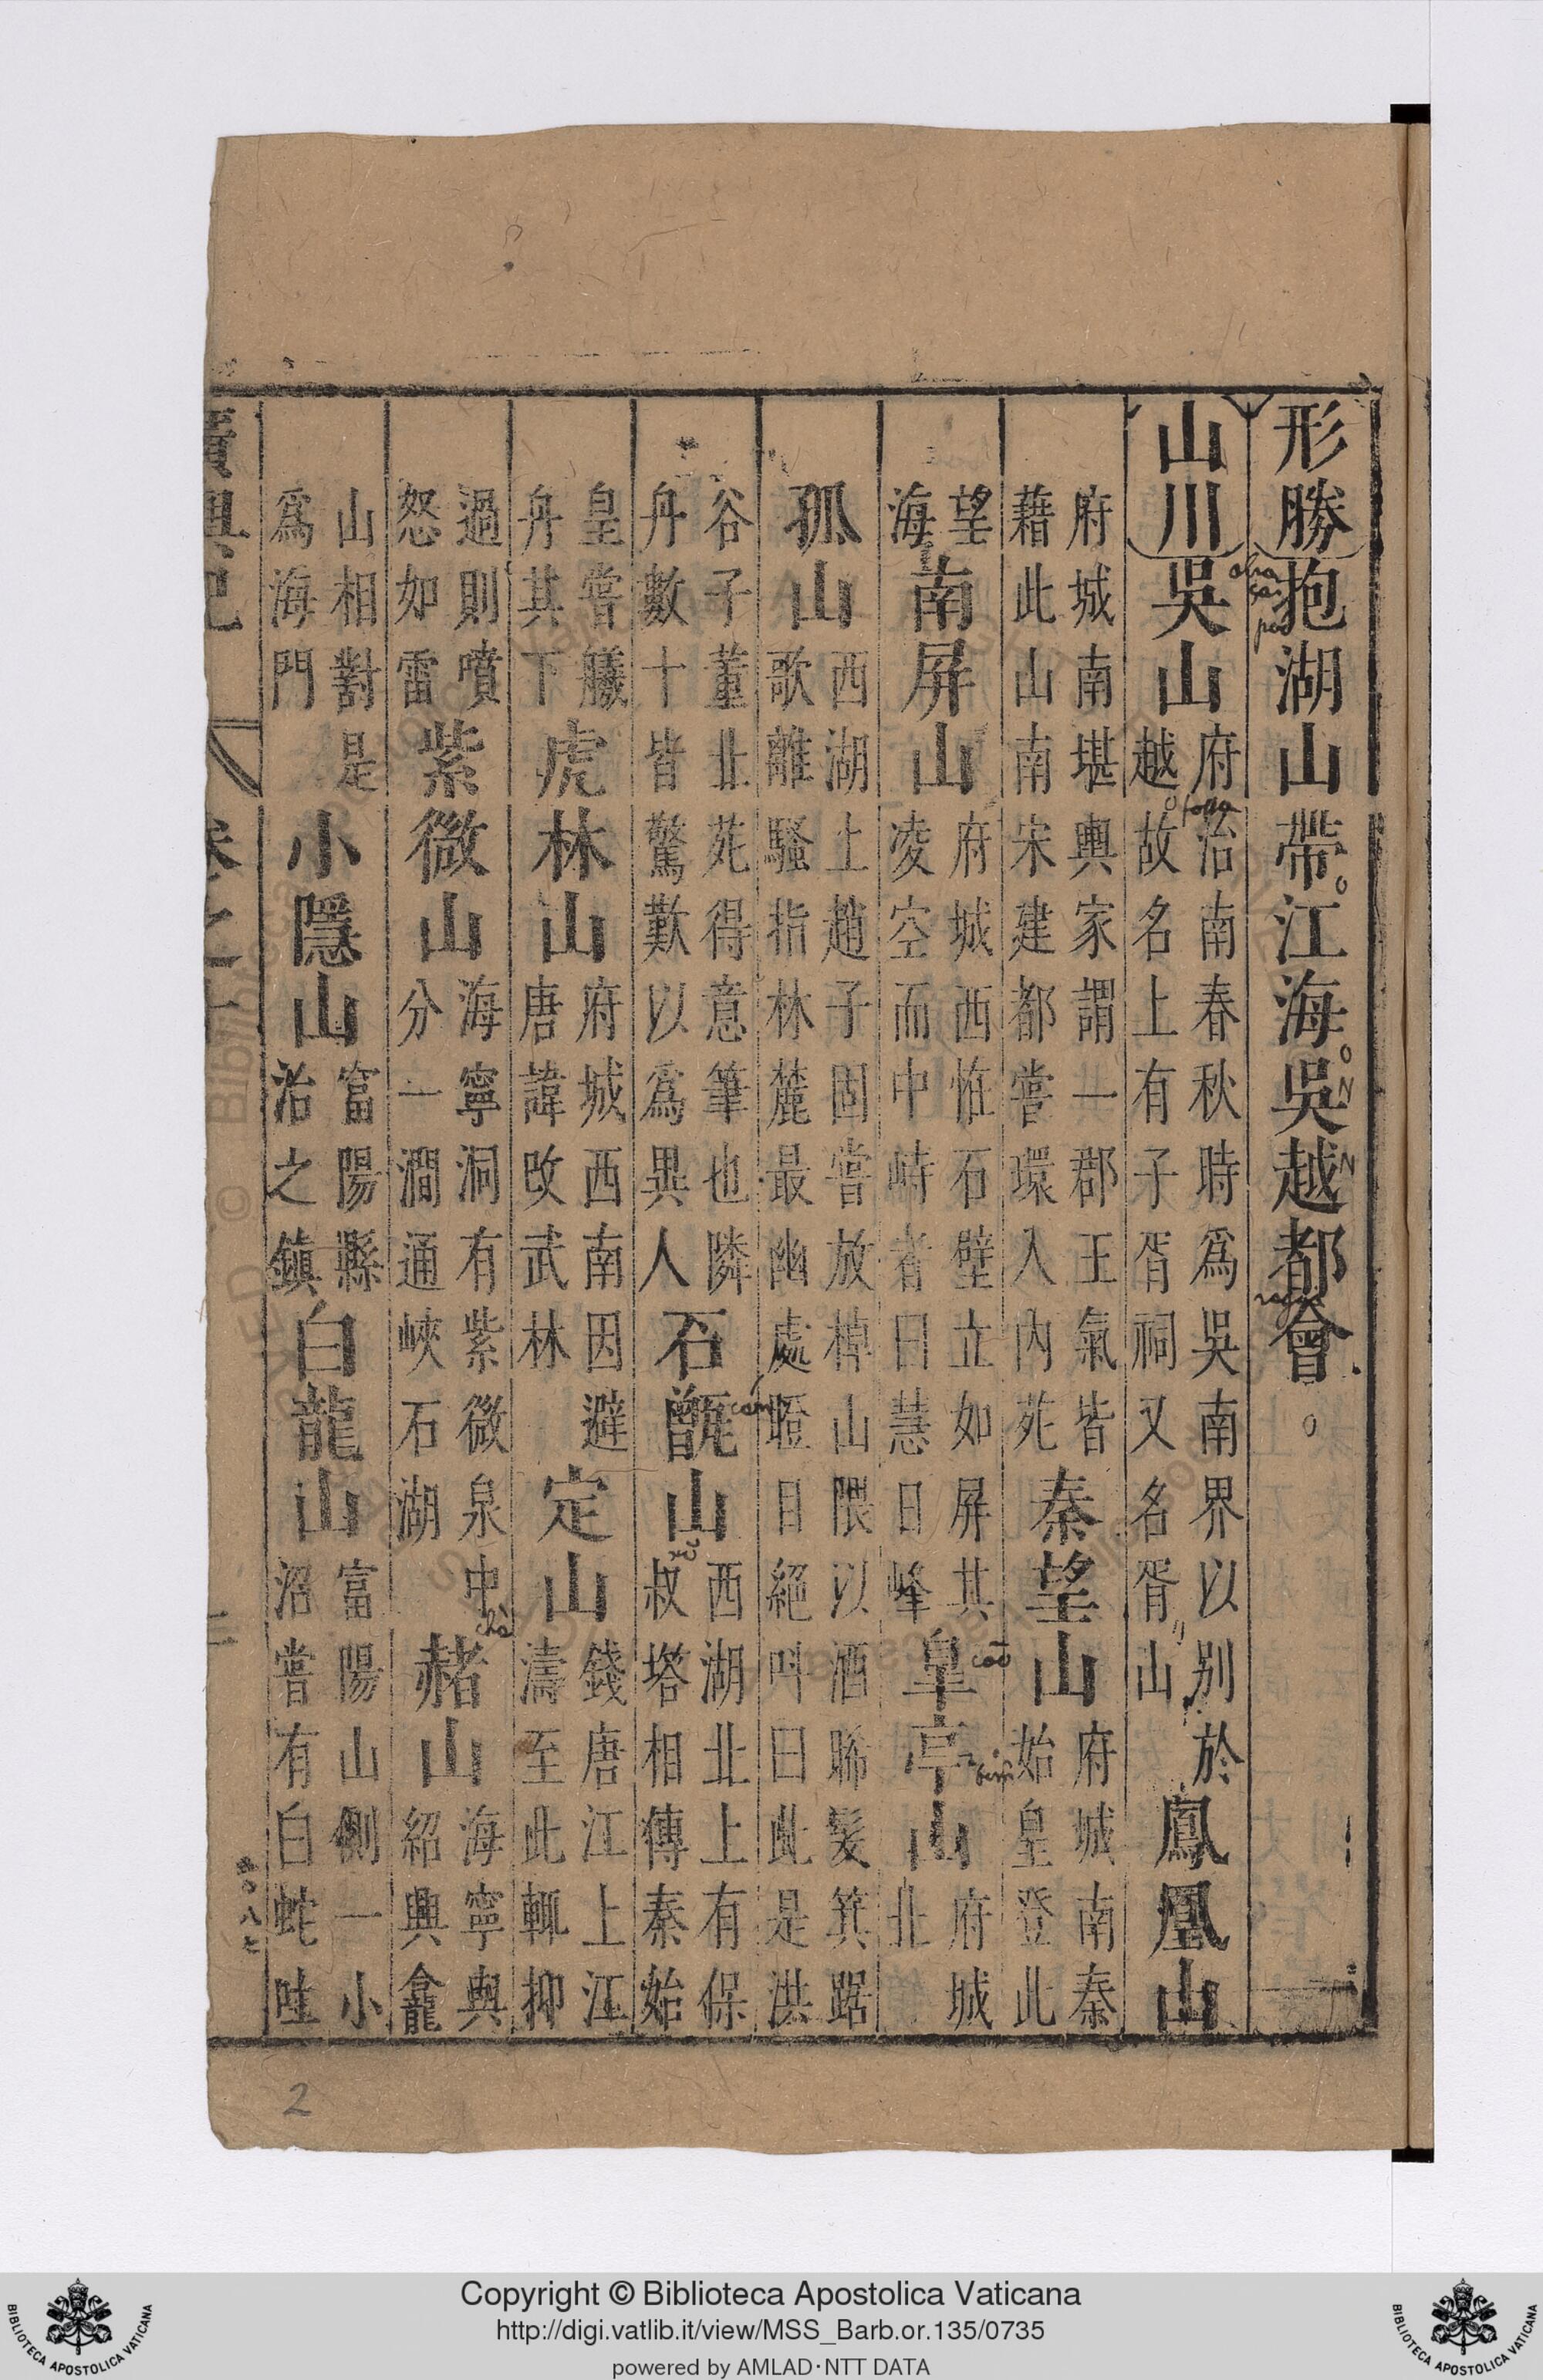 形勝抱湖山帶江海吳越都會
山川吳山府治南春秋時爲吳南界以别於越故名上有子胥祠又名胥山鳳凰山
府城南堪輿家謂一郡王氣皆藉此山南宋建都嘗環入内苑秦望山府城南秦始皇登此
望海南屏山府城西恠石壁立如屏其凌空而中峙者曰慧日峰皐亭山府城北
孤山西湖上趙子固嘗放棹山隈以酒晞髮箕踞歌離騷指林麓最幽處瞪目絕呌曰此是洪
谷子董北苑得意筆也隣舟數十皆驚歎以爲異人石甑山西湖北上有保叔塔相傳秦始
皇嘗艤舟其下虎林山府城西南因避唐諱改武林定山錢唐江上江濤至此輒抑
過則噴怒如雷紫微山海寧洞有紫微泉中分一澗通峽石湖赭山海寧與紹興龕
山相對是爲海門小隱山富陽縣治之鎮白龍山富陽山側一小沼嘗有白蛇蛙
2
Copyright © Biblioteca Apostolica Vaticana
http://digi.vatlib.it/view/MSS_Barb.or.135/0735
powered by AMLAD·NTT DATA
BIBLIOTECA APOSTOLICA VATICANA
BIBLIOTECA APOSTOLICA VATICANA